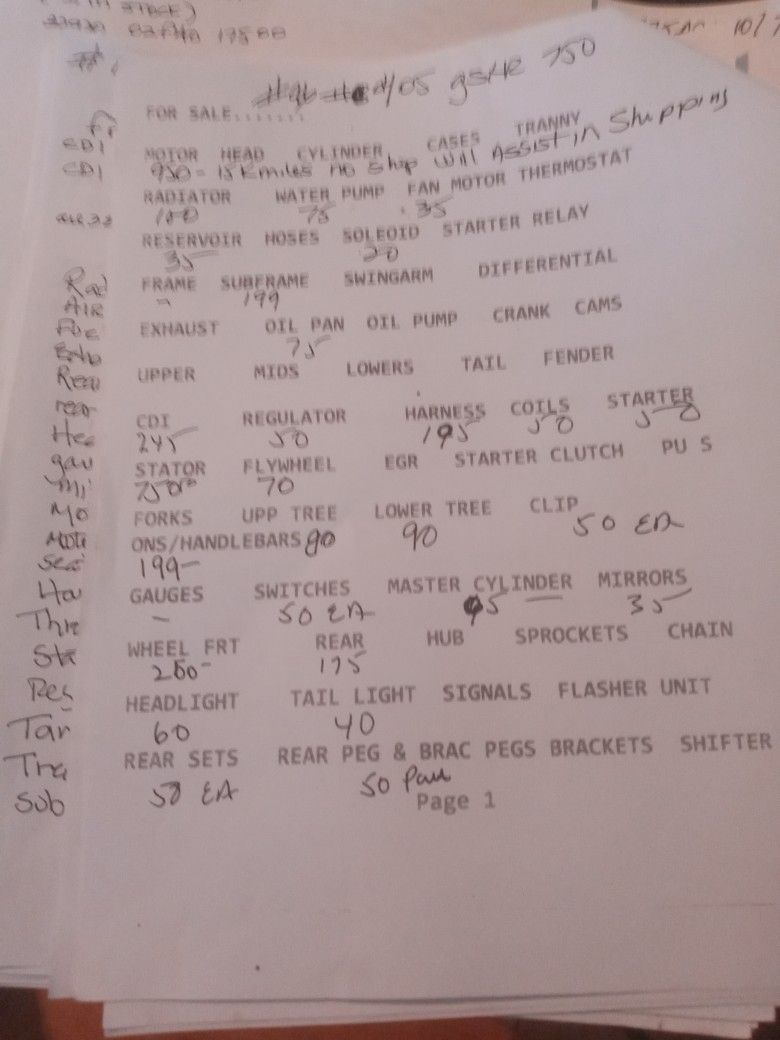 gsxr 750
FOR SALE.......
MOTOR HEAD CYLINDER CASES TRANNY
950- 15K miles no Ship Will Assist in Shipping
RADIATOR WATER PUMP FAN MOTOR THERMOSTAT
100 75 35
RESERVOIR HOSES SOLEOID STARTER RELAY
35 20
FRAME SUBFRAME SWINGARM DIFFERENTIAL
- 199
EXHAUST OIL PAN OIL PUMP CRANK CAMS
75
UPPER MIDS LOWERS TAIL FENDER
CDI REGULATOR HARNESS COILS STARTER
245 50 195 50 50
STATOR FLYWHEEL EGR STARTER CLUTCH PU S
70
FORKS UPP TREE LOWER TREE CLIP
ONS/HANDLEBARS 90 90 50 EA
199-
GAUGES SWITCHES MASTER CYLINDER MIRRORS
- 50 EA 95 35
WHEEL FRT REAR HUB SPROCKETS CHAIN
200- 175
HEADLIGHT TAIL LIGHT SIGNALS FLASHER UNIT
60 40
REAR SETS REAR PEG & BRAC PEGS BRACKETS SHIFTER
50 EA 50 Pair
Page 1
CDI
CDI
Rad
AIR
Exha
Rear
rear
Hea
gau
Mi
Mo
Moto
Sea
Ha
Thr
Sta
Res
Tan
Tra
Sub